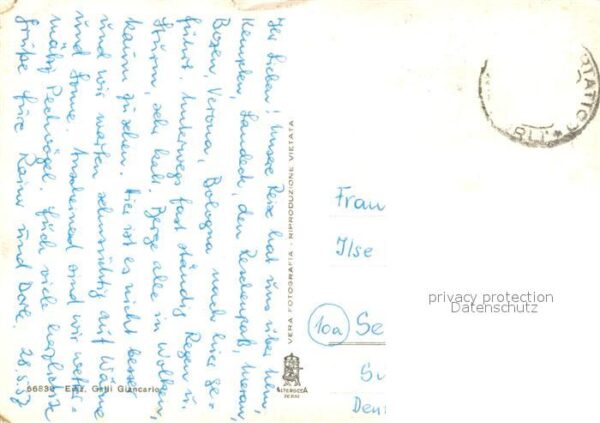 Ihr Lieben! Unsere Reise hat uns über Ulm,
Kempten, Landeck, den Reschenpaß, Meran,
Bozen, Verona, Bologna nach hier ge-
führt. Unterwegs fast ständig Regen u.
Sturm, sehr kalt. Berge alle in Wolken,
kaum zu sehen. Hier ist es nicht besser
und wir warten sehnsüchtig auf Wärme
und Sonne. Anscheinend sind wir wetter-
mäßig Pechvögel. Euch viele herzlichste
Grüße Eure Rainer und Dorle. 28.5.57
56836 Ediz. Galli Giancarlo
VERA FOTOGRAFIA - RIPRODUZIONE VIETATA
ALTEROCCA
TERNI
Frau
Ilse
10a
Se
Deu
privacy protection
Datenschutz